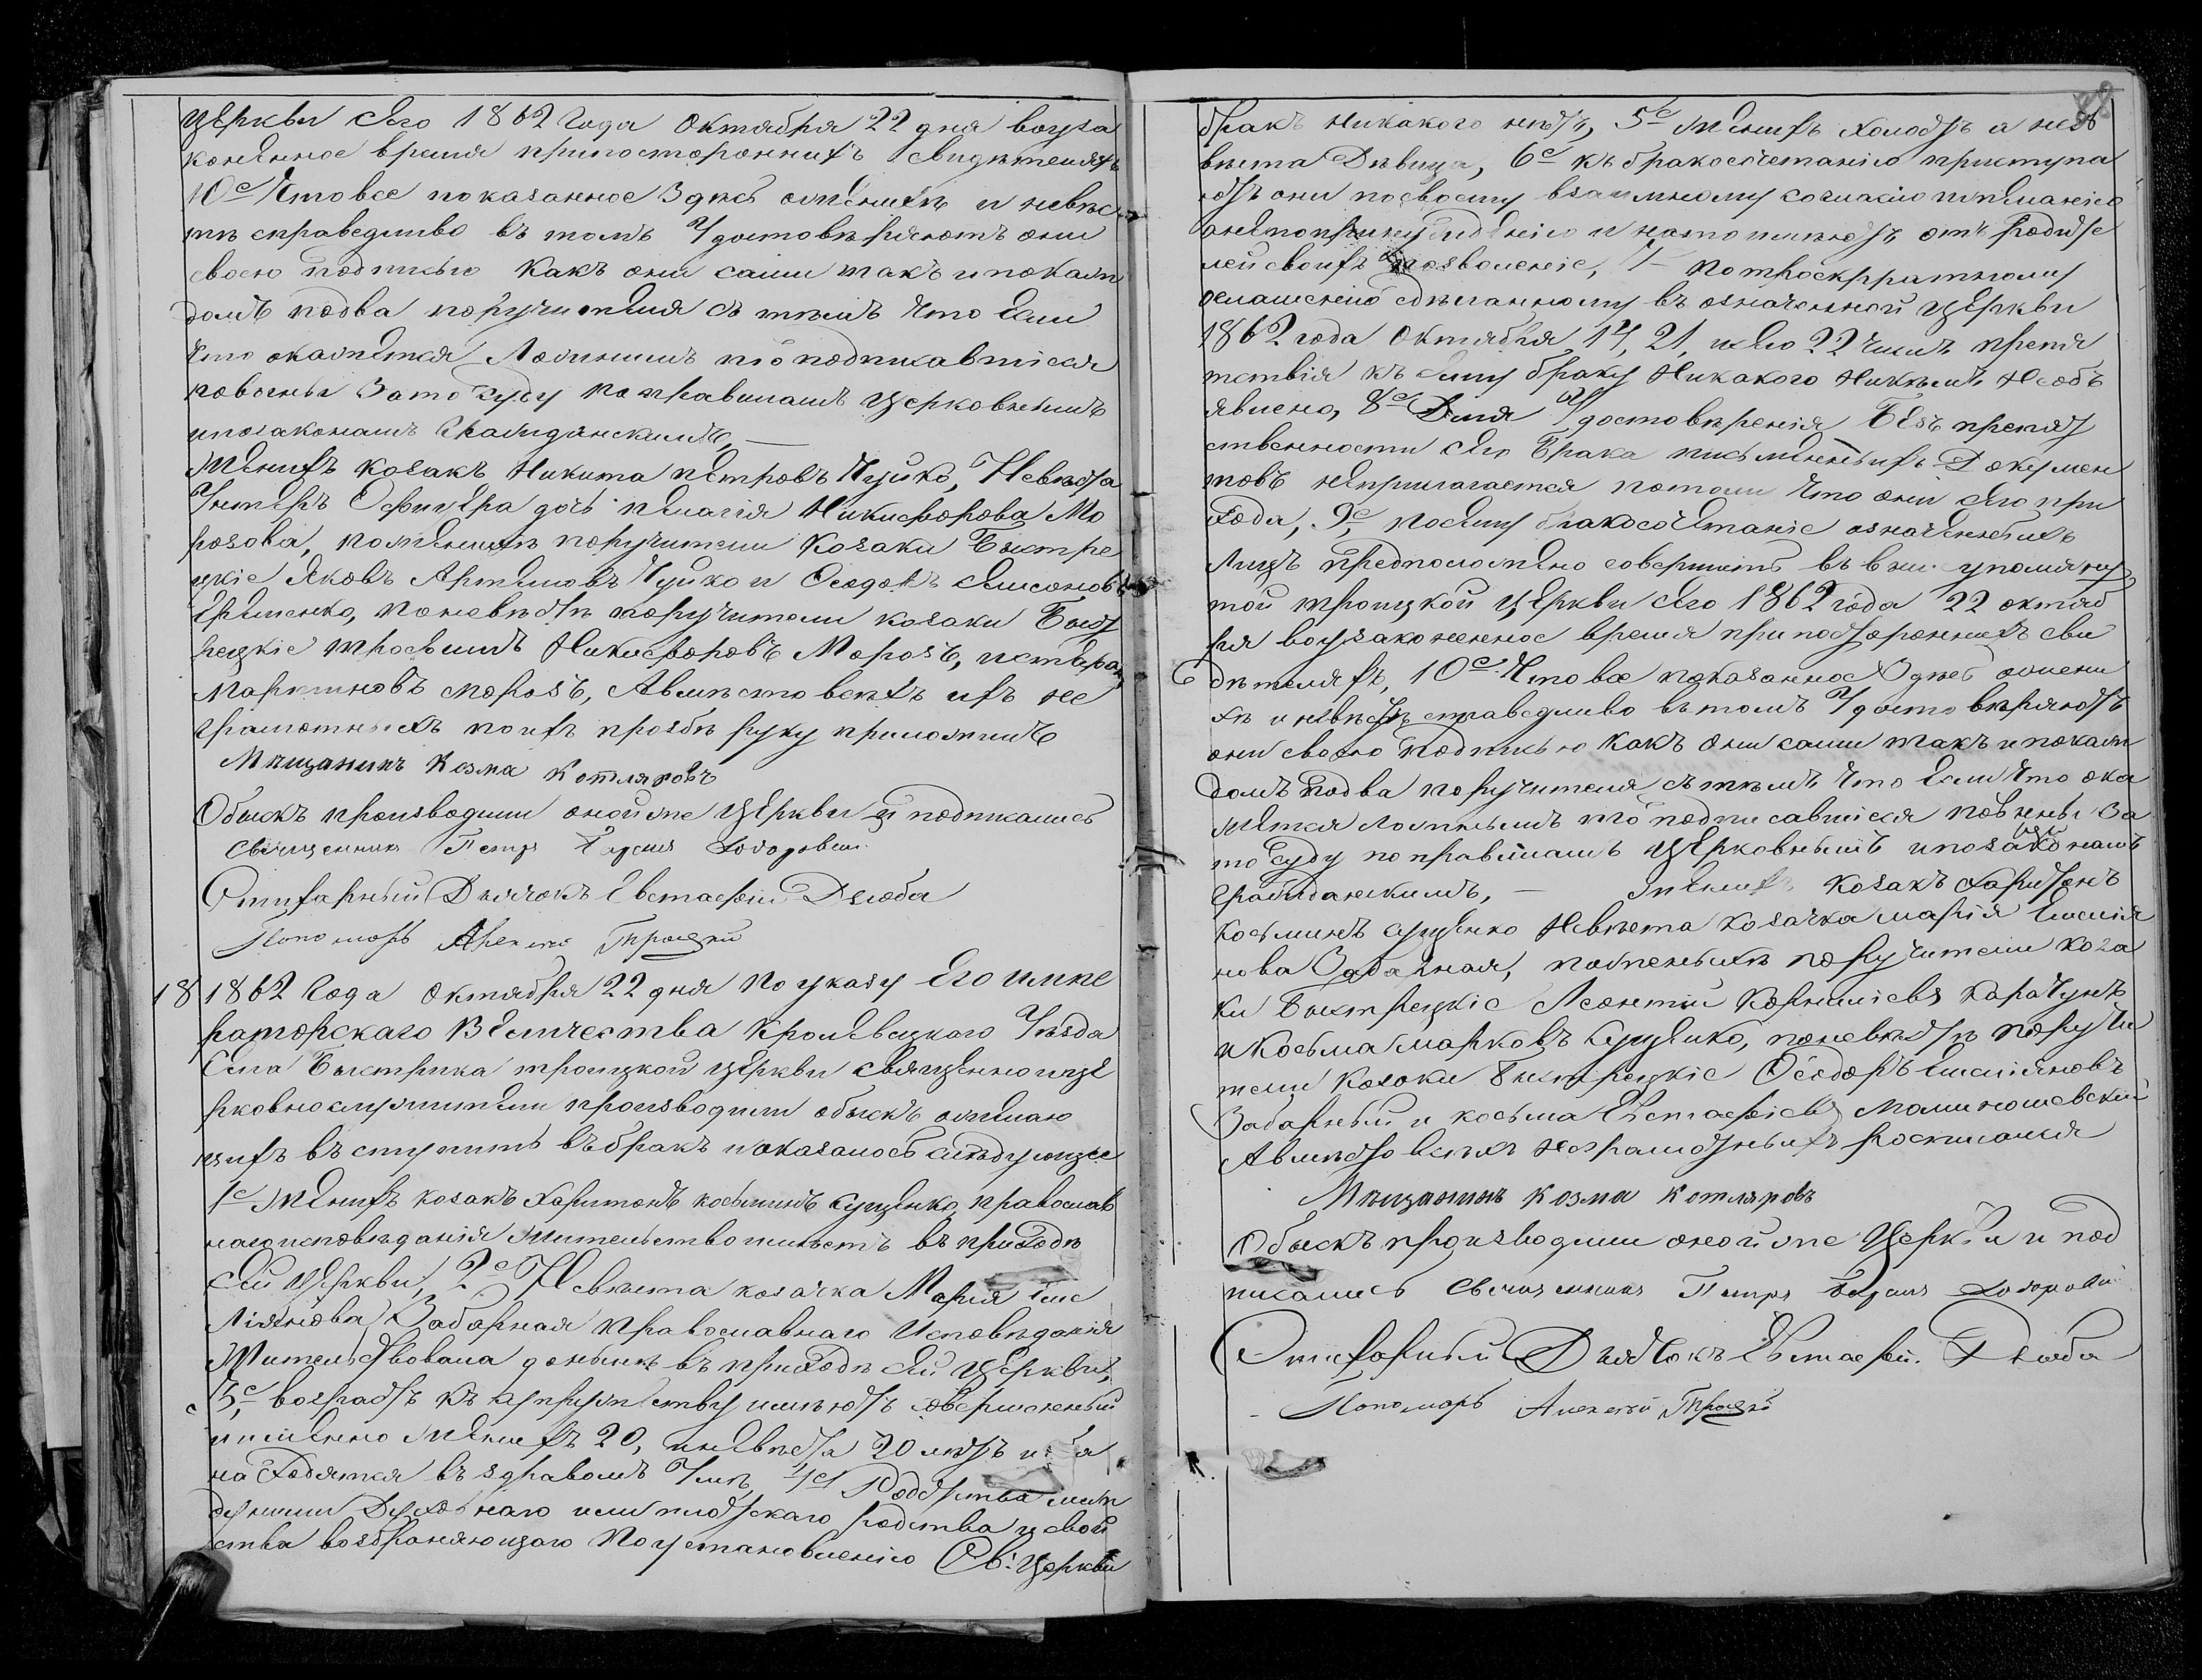 церкви сего 1862 года октября 22 дня воуза
коненное время припосторонних свидетелях
10е Что все показанное Здесь ожених и невес
те справедливо въ томъ Удостоверяютъ они
своею подписью Какъ они сами такъ и покаж
домъ подва поручителя съ темъ Что Если
Что окажется Ложнымъ то подписавшися
повынны Зато Суду по правиламъ церковнымъ
ипозаконамъ Гражданскимъ,
Женихъ козакъ Никита Петровъ Чуйко, Невеста
Унтеръ Офицера дочь пелагия Никифорова Мо
розова, поженихе поручители Козаки Быстре
цкіе Яковъ Артемовъ Чуйко и Феодоръ Самсоновъ
Еременко, поневесте поручители козаки Быст
рецкіе трофимъ Никифоровъ Морозъ,
Мартиновъ морозъ, Авместо всехъ ихъ не
грамотныхъ поихъ прозбе руку приложилъ
Мѣщанинъ Козма Котляровъ
Обыскъ производили оной же Церкви и подписались
Священникъ Петръ
Стихарный Дьячокъ Евстафій Дзюба
Пономарь Алексей Троцкій
18 1862 Года октября 22 дня По указу Его импе
раторскаго Величества кролевецкаго Уезда
Села Быстрика троицкой церкви священноице
рковнослужители производили обыскъ ожелаю
щихъ въступить въбракъ иоказалось следующее
1е Женихъ козакъ Харитонъ косьминъ Сущенко, православ
наго исповеданія жительство имеетъ въ приходе
сей церкви, 2е Невеста козачка Марія Еме
ліянова Забарная Православнаго Исповеданія
Жительствовала доныне въ приходе сей церкви,
3е, возрастъ къ супружеству имеютъ совершенный
иименно женихъ 20, иневеста 20 летъ и оба
находятся въ здравомъ Уме, 4е Родства меж
ду ними Духовнаго или плотскаго родства и свой
ства возбраняющаго По установленію Св: церкви
бракъ никакого нетъ, 5е женихъ холостъ и не
веста Девица, 6е къ бракосочетанію приступа
ютъ они посвоему взаимному согласію ижеланію
анепопринуждению и натоимеютъ отъ Родите
лей своихъ позволеніе, 7 по троекрратному
оглашенію сделанному въ означенной церкви
1862 года Октября 14, 21, исего 22 чиселъ препя
тствія къ сему браку Никакого Никемъ Необъ
явлено, 8е Для Удостоверенія Безъ препят
ственности сего Брака письменныхъ Докумен
товъ неприлагается потому Что они сего при
хода, 9е, посему бракосочетаніе означенныхъ
лицъ предположено совершить въ выше упомяну
той троицкой церкви сего 1862 года 22 октяб
ря воузаконенное время при посторонних сви
детеляхъ, 10е Что все показанное Здесь ожени
хе и невесте справедливо въ томъ Удостоверяютъ
они своею подписью Какъ они сами такъ и покаж
домъ подва поручителя, съ темъ Что Если Что ока
жется ложнымъ то подписавшися повинны За
то суду по правиламъ церковнымъ ипозаконамъ
гражданскимъ, — женихъ козакъ Харитонъ
Косьминъ Сущенко Невеста Козачка марія Емелія
нова Забарная, поженихе поручители коза
ки Быстрецкіе Леонтий Корниліевъ Карачунъ
и Косьма марковъ Сущенко, поневесте поручи
тели Козаки Быстрецкіе Феодоръ Емеліяновъ
Забарный и косьма Евстафіевъ
Авместо всехъ неграмотныхъ росписался
Мѣщанинъ Козма Котляровъ
Обыскъ производили оной же Церкви и под
писались Священникъ Петръ
Стихарный Дьячокъ Евстафій Дзюба
Пономарь Алексей Троцкій